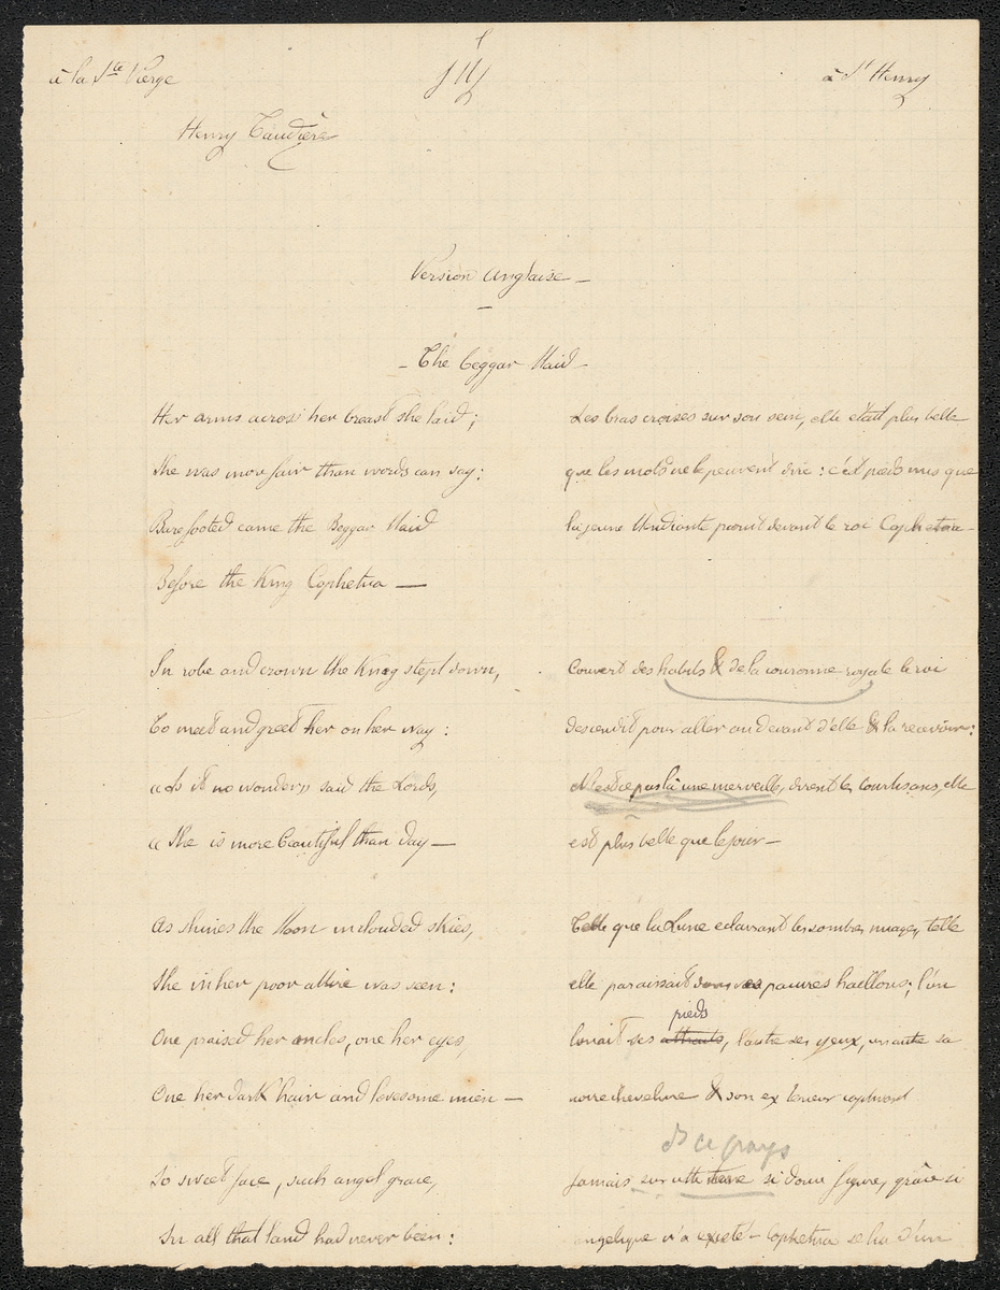 à la Ste Vierge
J.M.J.
à St Henry
Henry Taudière
Version Anglaise —
— The Beggar Maid —
Her arms across her breast she laid;
She was more fair than words can say:
Barefooted came the Beggar Maid
Before the King Cophetua —
In robe and crown the King stept down,
To meet and greet her on her way:
« Is it no wonder, » said the Lords,
« She is more beautiful than day —
As shines the Moon inclouded skies,
She in her poor attire was seen:
One praised her ancles, one her eyes,
One her dark hair and lovesome mien —
So sweet face, such angel grace,
In all that land had never been:
Les bras croisés sur son sein, elle était plus belle
que les mots ne le peuvent dire : c'est pieds nus que
la jeune Mendiante parut devant le roi Cophetua —
Couvert des habits & de la couronne royale le roi
descendit pour aller au devant d'elle & la recevoir :
N'est ce pas là une merveille, dirent les courtisans, elle
est plus belle que le jour —
Telle que la Lune eclairant les sombres nuages, telle
elle paraissait dans ses pauvres haillons; l'un
pieds
louait ses attraits, l'autre ses yeux, un autre sa
noire chevelure & son exterieur captivant
ds ce pays
Jamais sur cette terre si doux figure, grâce si
angelique n'a existé — Cophetua se lia d'un